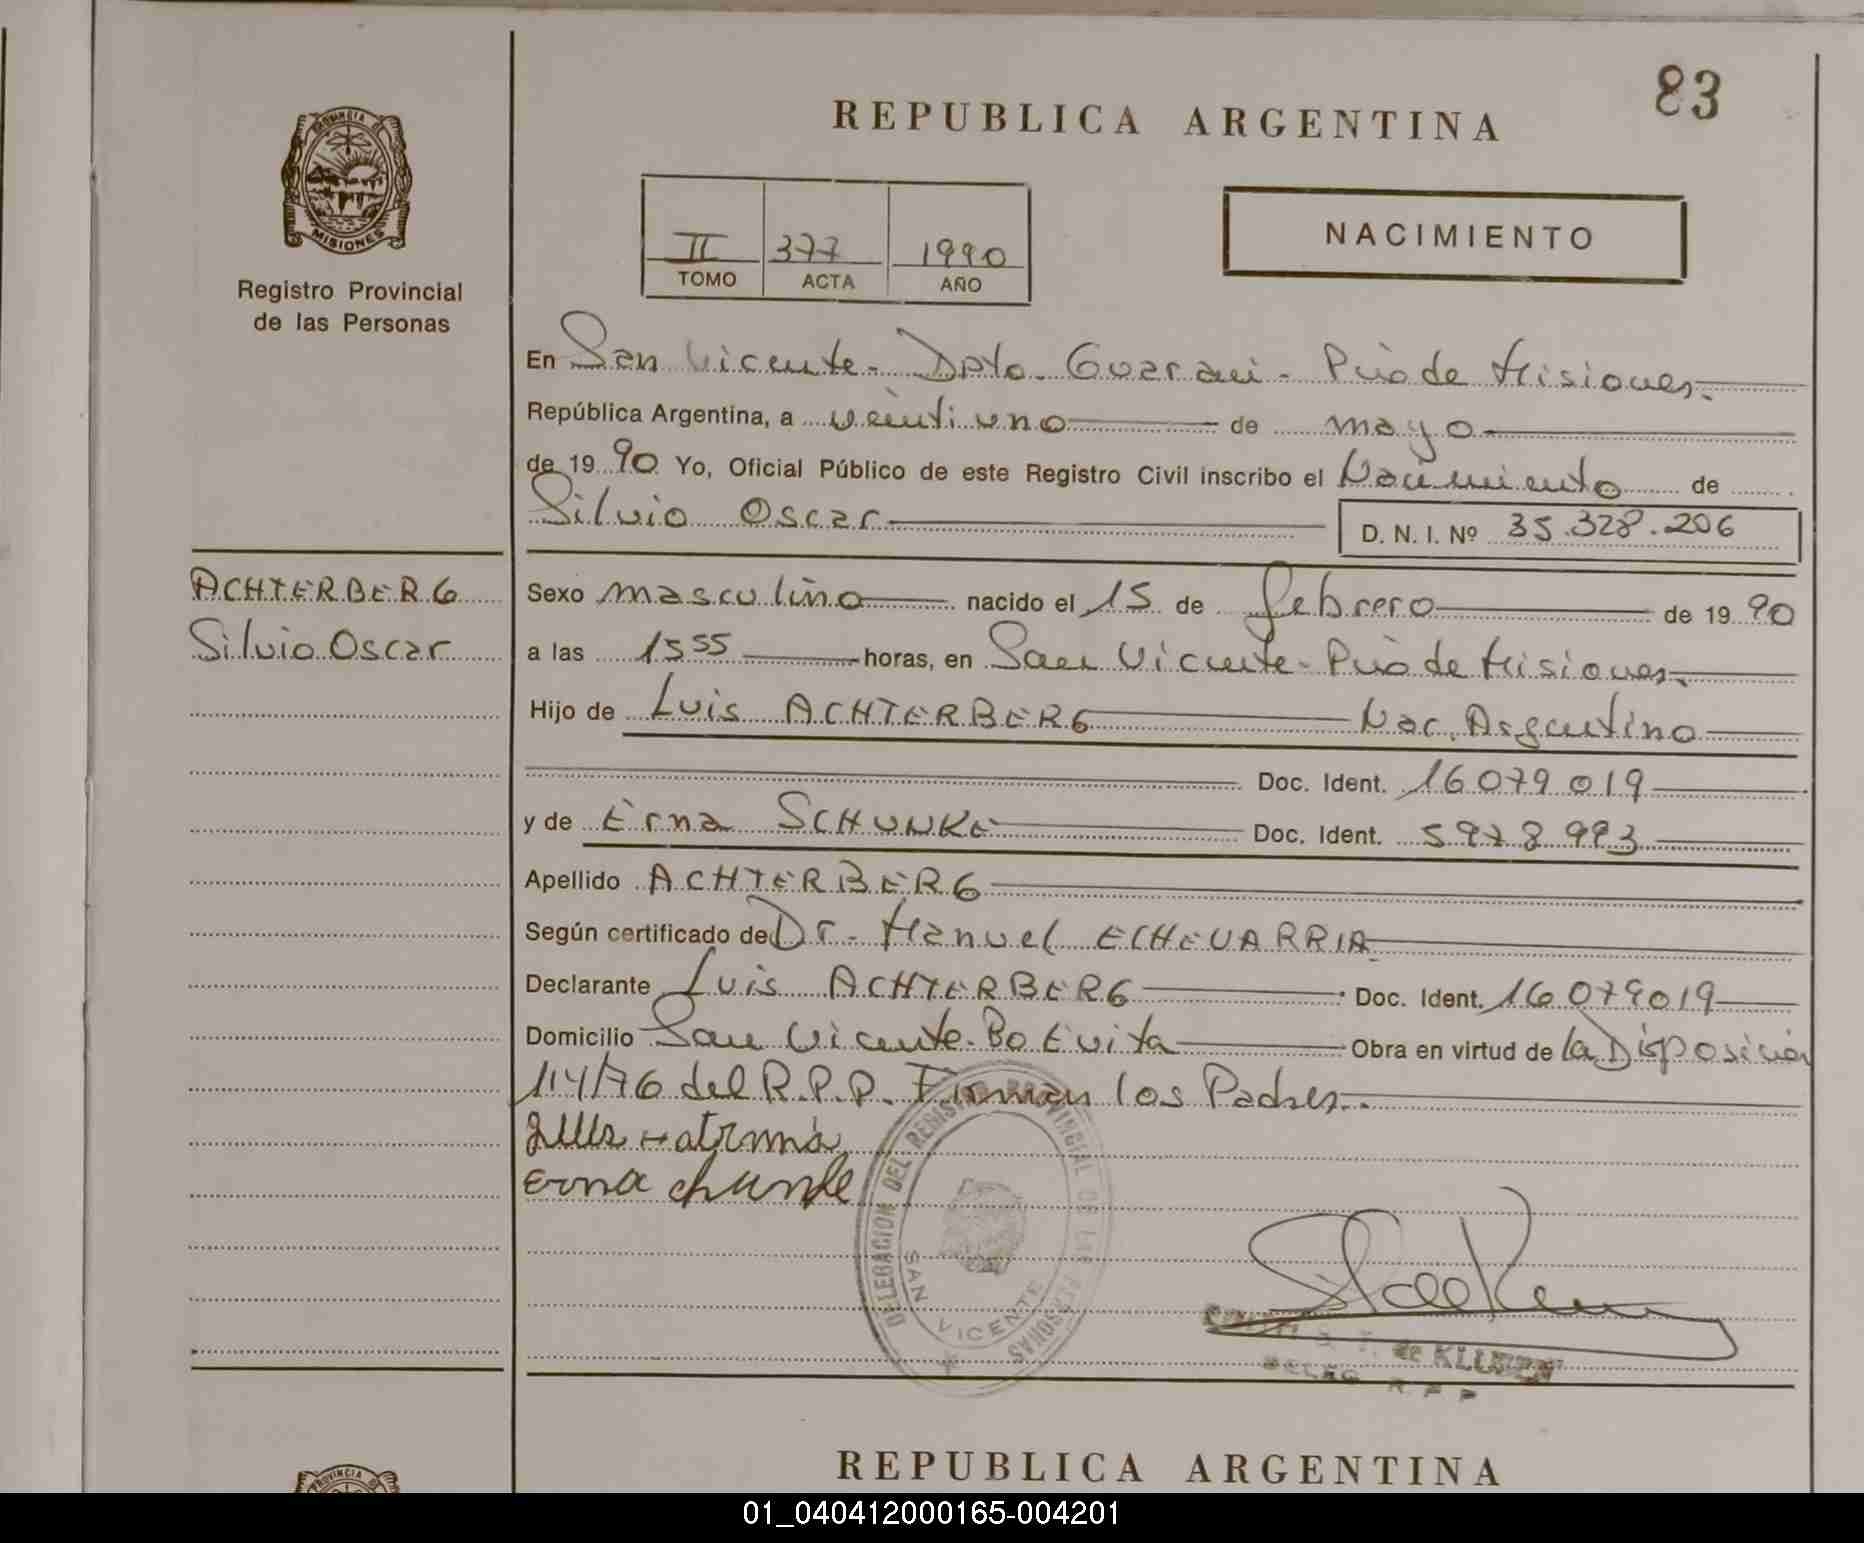 83
REPUBLICA ARGENTINA
PROVINCIA DE
MISIONES
Registro Provincial
de las Personas
II 377 1990
TOMO ACTA AÑO
NACIMIENTO
En San Vicente - Dpto. Guarani - Pcia de Misiones.
República Argentina, a veintiuno de mayo
de 1990 Yo, Oficial Público de este Registro Civil inscribo el Nacimiento de
Silvio Oscar
D. N. I. Nº 35.328.206
ACHTERBERG
Silvio Oscar
Sexo masculino nacido el 15 de febrero de 1990
a las 15 55 horas, en San Vicente - Pcia de Misiones.
Hijo de Luis ACHTERBERG Nac. Argentino
Doc. Ident. 16079019
y de Erna SCHUNKE Doc. Ident. 5978993
Apellido ACHTERBERG
Según certificado de Dr. Manuel ECHEVARRIA
Declarante Luis ACHTERBERG Doc. Ident. 16079019
Domicilio San Vicente - Bo Evita Obra en virtud de la Disposición
114/76 del R.P.P. Firman los Padres.
Erna chunke
DELEGACION DEL REGISTRO PROVINCIAL DE LAS PERSONAS
SAN VICENTE
T. de KLUSEN
DELEG. R. P. P.
PROVINCIA DE
REPUBLICA ARGENTINA
01_040412000165-004201